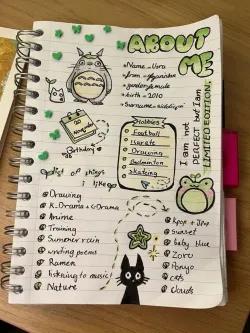 ABOUT ME
Name = Usra
from = Afganistan
gender = female
birth = 2010
Surname =
Hobbies
Football
Karate
Drawing
Badminton
skating
Birthday
I am not
PERFECT but I am
LIMITED EDITION!
list of things
I like
Drawing
K.Drama + C.Drama
Anime
Training
Summer rain
writing poems
Ramen
listening to music!
Nature
Kpop + Jpop
Sunset
baby blue
Zoro
Ponyo
cats
clouds